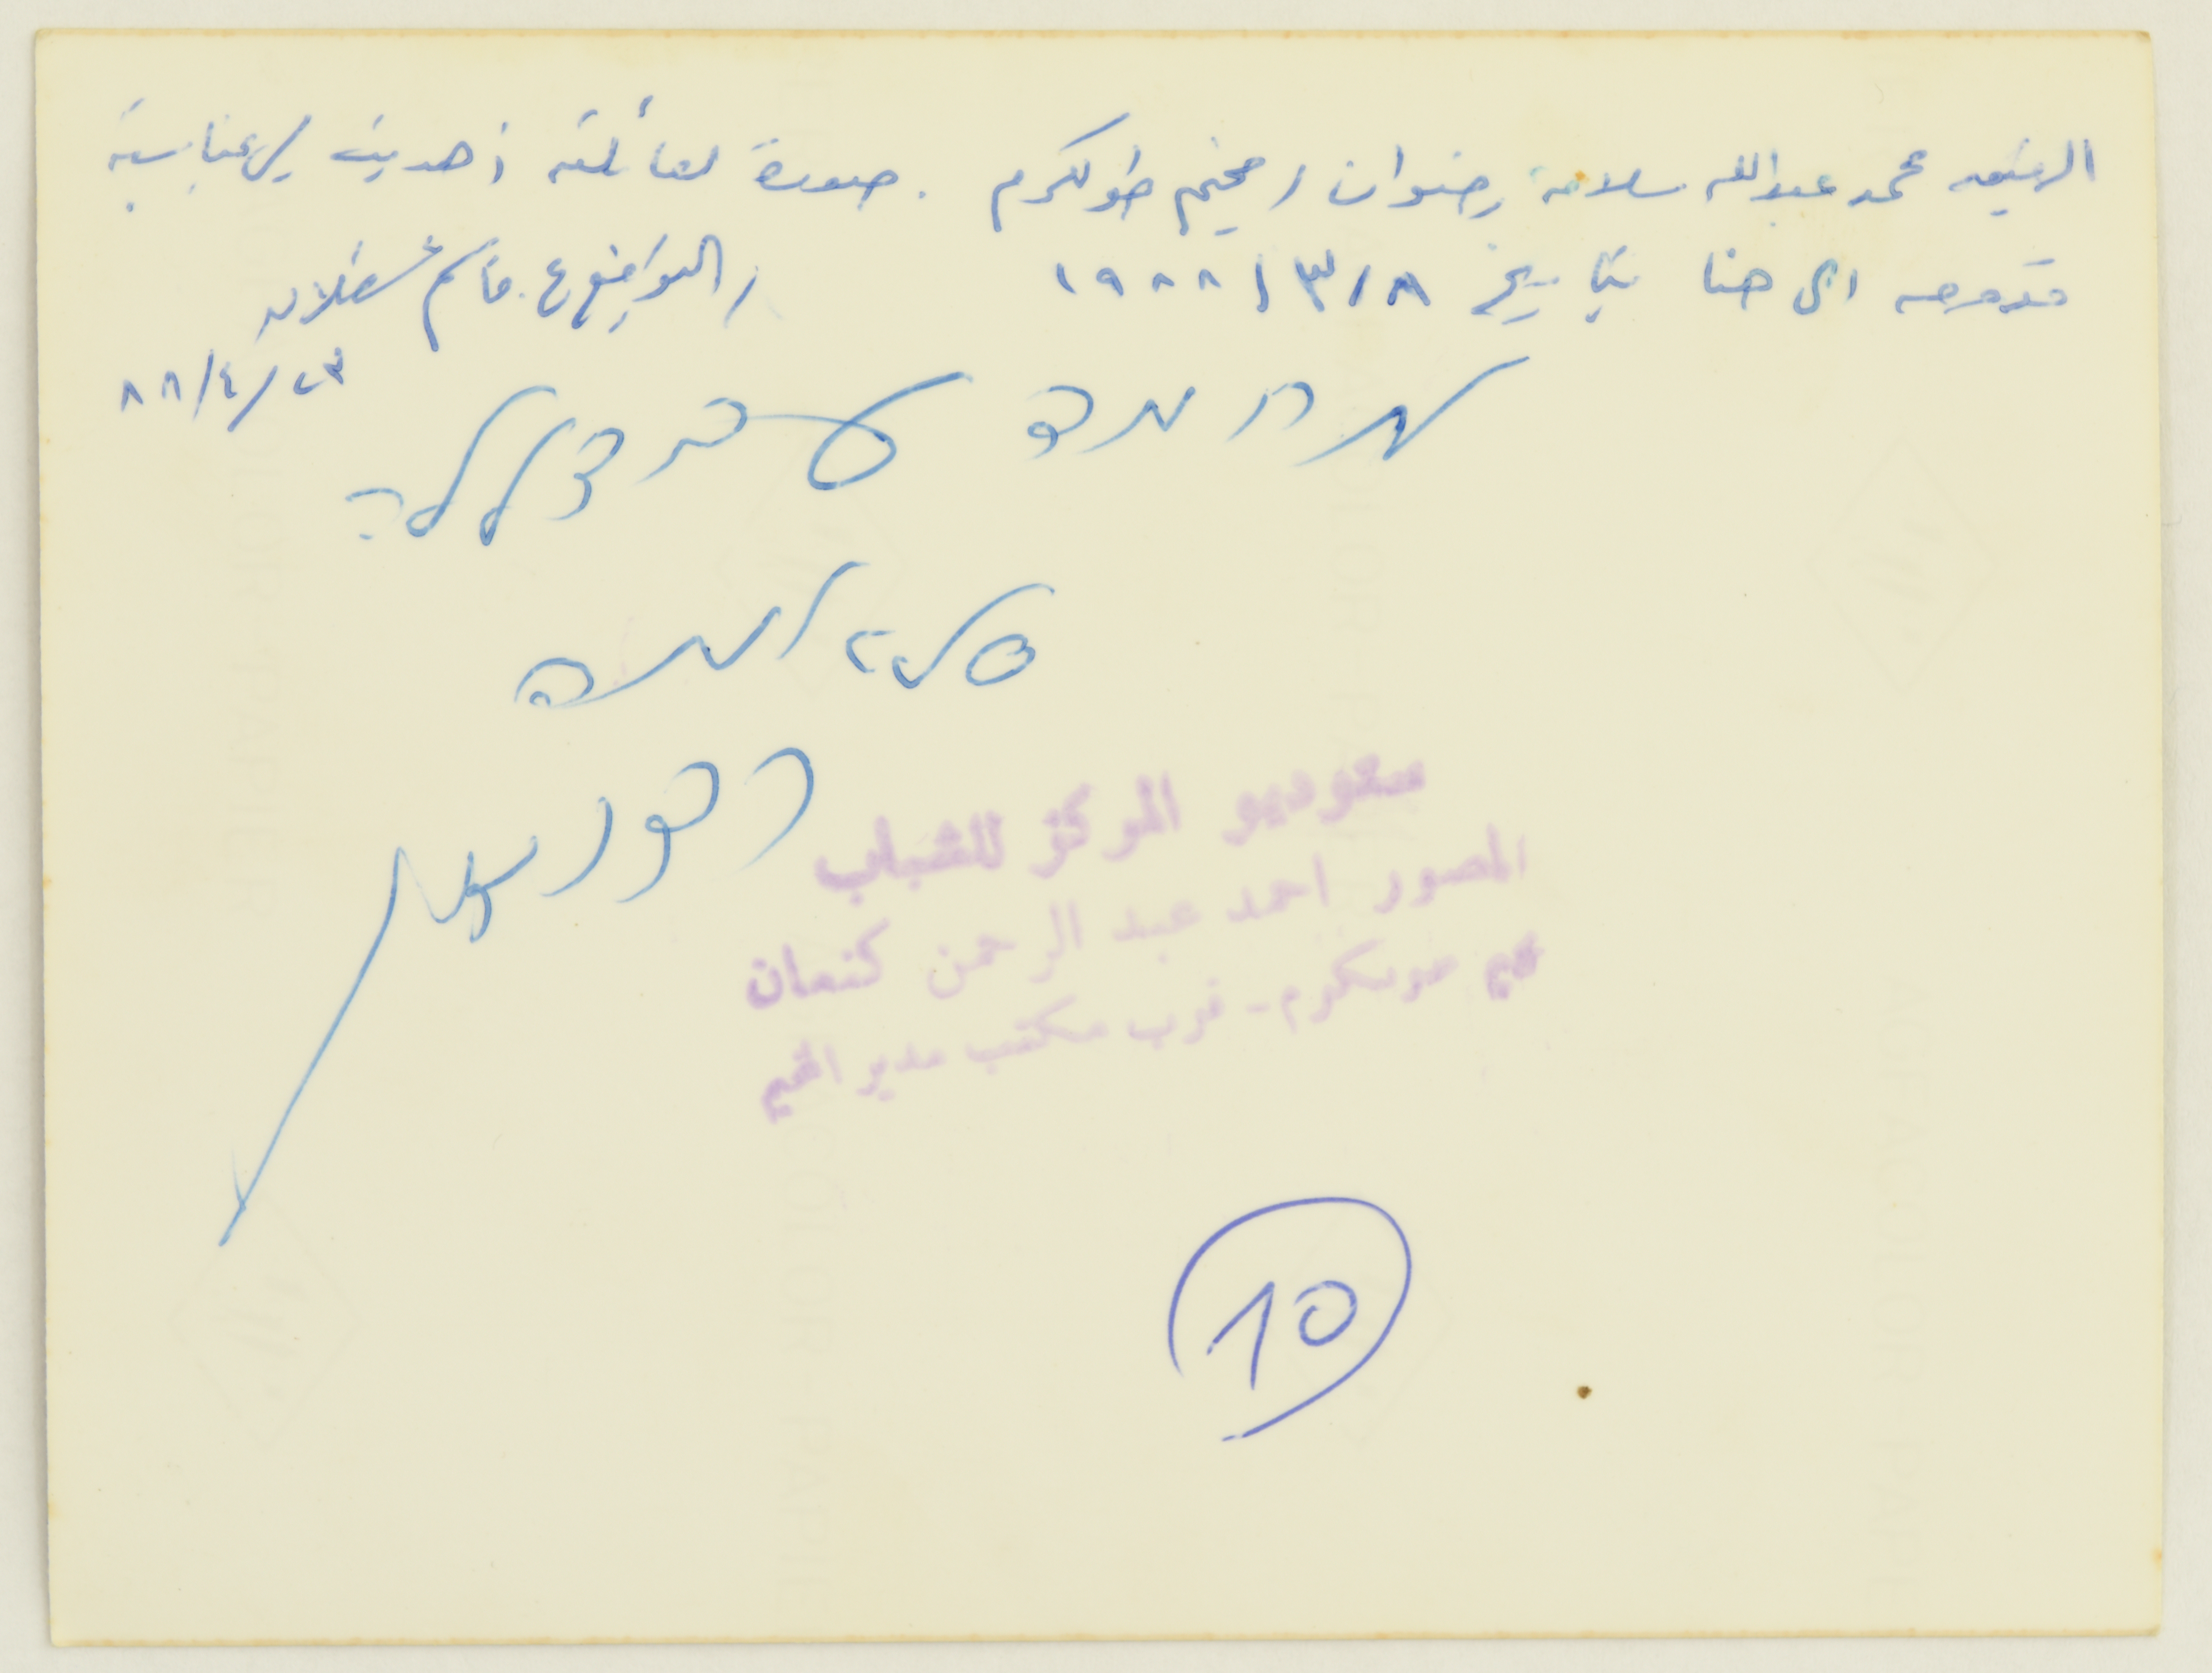 الرفيق محمد عبدالله سلامه رضوان / مخيم طولكرم . صورة لعائلته أهديت لي بمناسبة
قدومه الى هنا بتاريخ ١٩٨٨/٣/٨ / المواضع ع. قاسم شعلان
٨٨/٤/٢٣
מחמד עבדאללה
סלאמה
סתודיו
ستوديو المركز للشباب
المصور احمد عبد الرحمن كنعان
مخيم طولكرم - قرب مكتب مدير المخيم
10
AGFACOLOR PAPIER